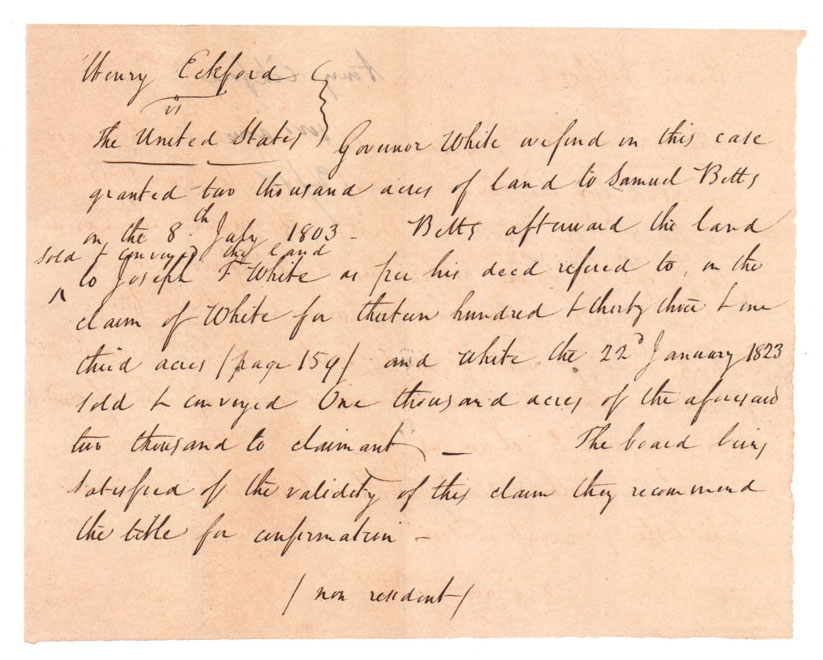 Henry Eckford
vs
The United States } Governor White in this case
granted two thousand acres of land to Samuel Betts
on the 8th July 1803 - Betts afterward the land
sold & conveyed the land
to Joseph F White as per his deed refered to, on the
claim of White for thirteen hundred & thirty three & one
third acres (page 159) and White the 22d January 1823
sold & conveyed One thousand acres of the aforesaid
two thousand to claimant - The board being
satisfied of the validity of this claim they recommend
the title for confirmation -
(non resident)